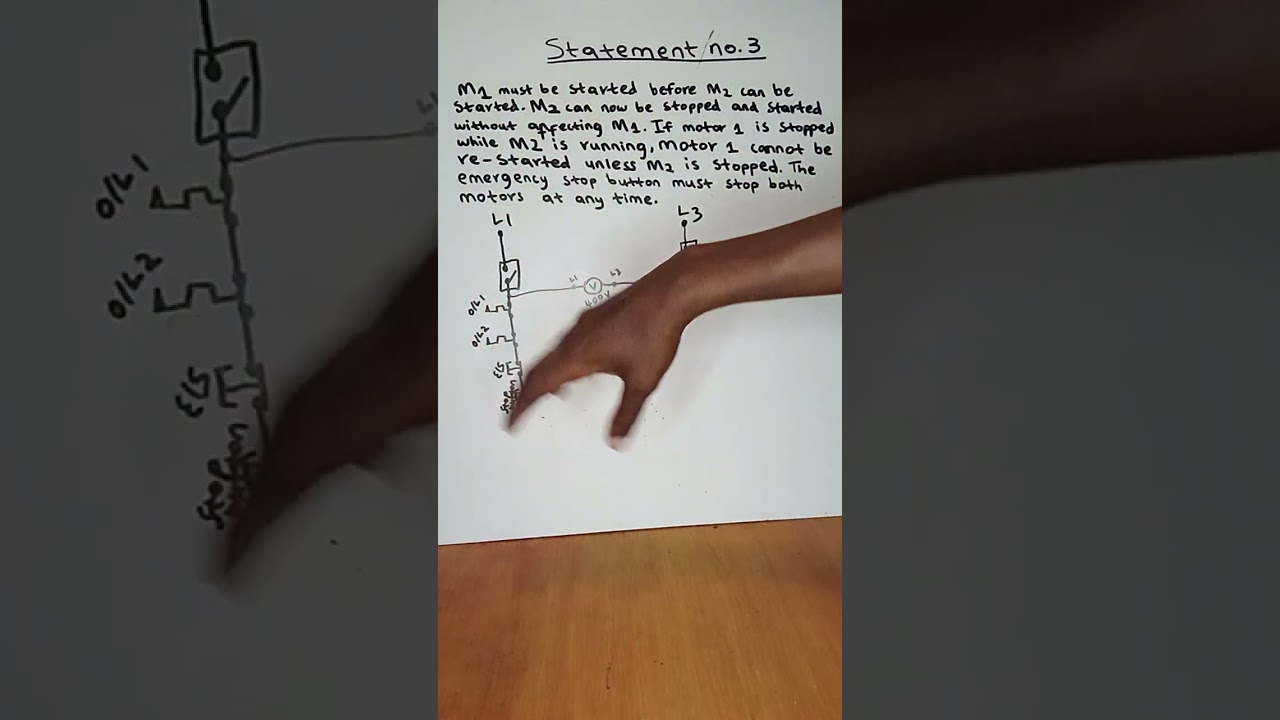 Statement no.3
M1 must be started before M2 can be
started. M2 can now be stopped and started
without affecting M1. If motor 1 is stopped
while M2 is running, motor 1 cannot be
re-started unless M2 is stopped. The
emergency stop button must stop both
motors at any time.
L1
L3
L1
400V
V
O/L1
O/L2
E/S
stop
O/L1
O/L2
E/S
stop